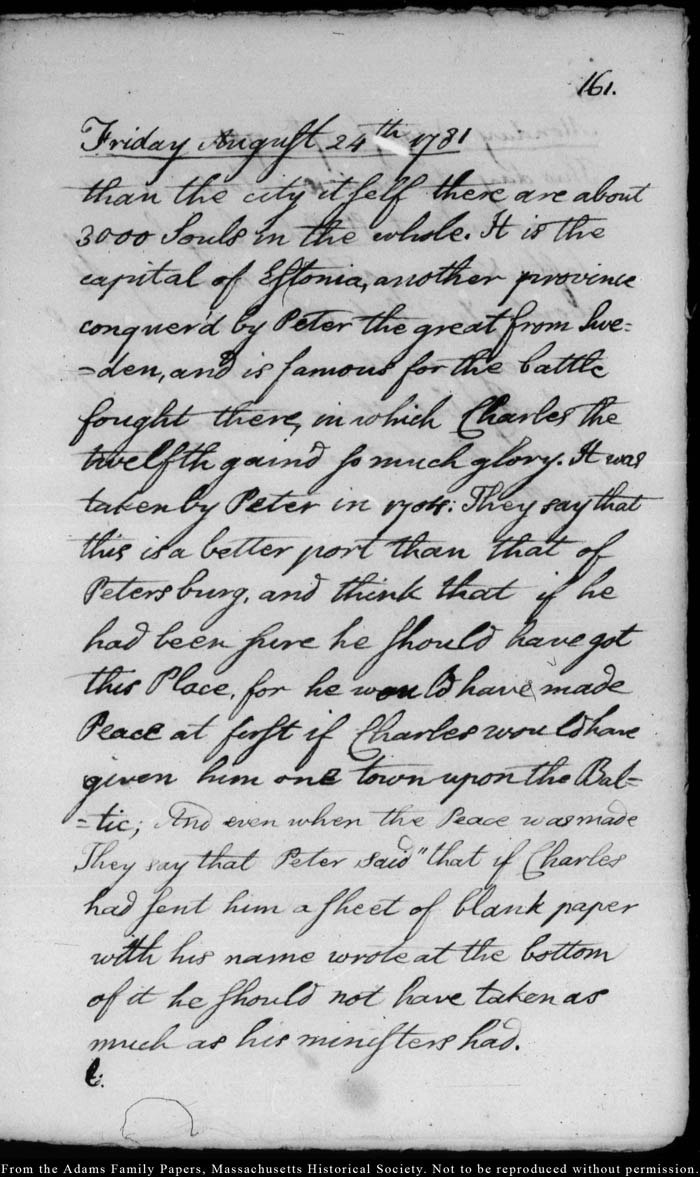 161.
Friday August 24th 1781
than the city itself there are about
3000 Souls in the whole. It is the
capital of Estonia, another province
conquer'd by Peter the great from Swe=
=den, and is famous for the battle
fought there, in which Charles the
twelfth gaind so much glory. It was
taken by Peter in 1704: They say that
this is a better port than that of
Petersburg, and think that if he
had been sure he should have got
this Place, for he would have made
Peace at first if Charles would have
given him one town upon the Bal=
=tic; And even when the Peace was made
They say that Peter said "that if Charles
had sent him a sheet of blank paper
with his name wrote at the bottom
of it he should not have taken as
much as his ministers had.
From the Adams Family Papers, Massachusetts Historical Society. Not to be reproduced without permission.